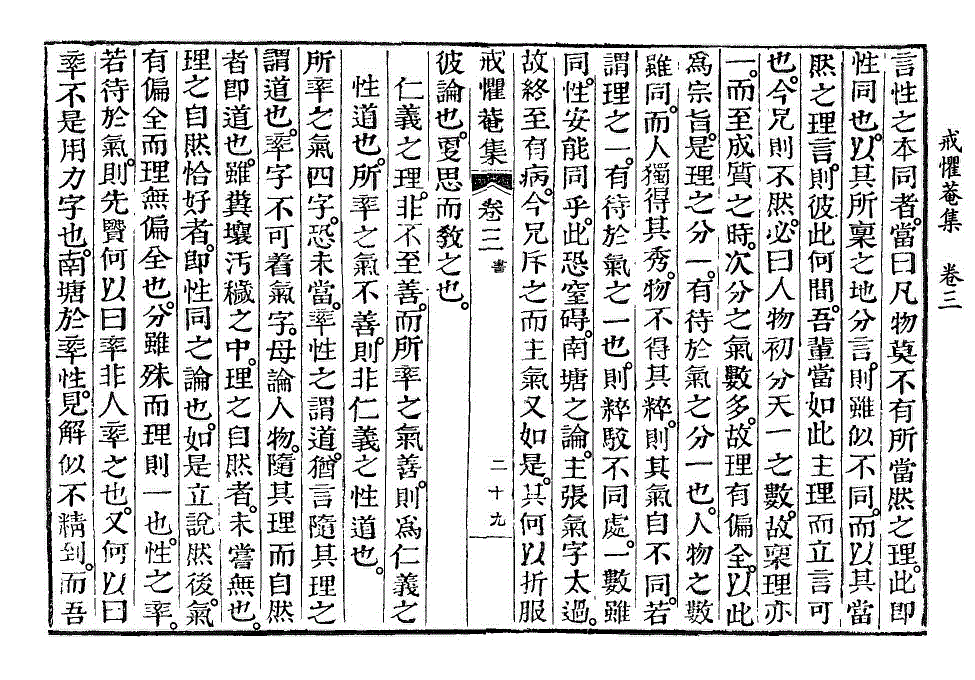 戒懼菴集　卷三
言性之本同者。當曰凡物莫不有所當然之理。此卽
性同也。以其所稟之地分言。則雖似不同。而以其當
然之理言。則彼此何間。吾輩當如此主理而立言可
也。今兄則不然。必曰人物初分天一之數。故稟理亦
一。而至成質之時。次分之氣數多。故理有偏全。以此
爲宗旨。是理之分一。有待於氣之分一也。人物之數
雖同。而人獨得其秀。物不得其粹。則其氣自不同。若
謂理之一。有待於氣之一也。則粹駁不同處。一數雖
同。性安能同乎。此恐窒碍。南塘之論。主張氣字太過。
故終至有病。今兄斥之而主氣又如是。其何以折服
戒懼菴集　卷三　書　二十九
彼論也。更思而敎之也。
仁義之理。非不至善。而所率之氣善。則爲仁義之
性道也。所率之氣不善。則非仁義之性道也。
所率之氣四字。恐未當。率性之謂道。猶言隨其理之
謂道也。率字不可着氣字。毋論人物。隨其理而自然
者卽道也。雖糞壤汚穢之中。理之自然者。未嘗無也。
理之自然恰好者。卽性同之論也。如是立說然後。氣
有偏全而理無偏全也。分雖殊而理則一也。性之率。
若待於氣。則先贒何以曰率非人率之也。又何以曰
率不是用力字也。南塘於率性。見解似不精到。而吾